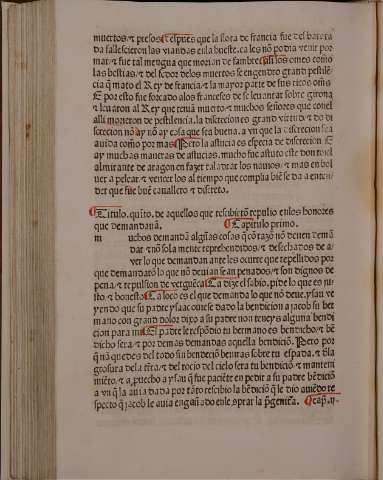 muertos ⁊ presos despues que la flota de francia fue desbarata
da fallescieron las viandas en la hueste. ca les nõ podia venir por
mar. ⁊ fue tal mengua que morian de fambre assi los omes como
las bestias. ⁊ del fedor delos muertos se engendro grand pestilẽ
cia q̃ mato el Rey de francia. ⁊ la mayor parte de sus ricos om̃s
E por esto fue forcado alos franceses de se leuantar sobre girona
⁊ leuaron al Rey que tenia muerto ⁊ muchos señores que conel
alli morieron de pestilencia. la discrecion es grand virtud ⁊ do di
screcion nõ ay nõ ay cosa que sea buena. avn que la discrecion sea
auida como por mas Pero la astucia es especia de discrecion E
ay muchas maneras de astucias. mucho fue astuto este don rogel
almirante de aragon en fazer taladrar los nauios. ⁊ mas en bol
uer a pelear. ⁊ vencer los al tiempo que complia biẽ se da a enten
der que fue buẽ cauallero ⁊ discreto.
Titulo. quito. de aquellos que resibierõ repulio enlos honores
que demandauã. Capitulo primo.
m uchos demandã algũas cosas q̃ con razõ nõ deuen demã
dar ⁊ nõ sola mente reprehendidos. ⁊ desechados de a
ver lo que demandan ante les ocurre que repellidos por
que demandarõ lo que nõ deuian sean penados. ⁊ son dignos de
pena. ⁊ repulsion de verguẽca Ca dize el sabio. pide lo que es iu
sto. ⁊ honesto Ca loco es el que demanda lo que nõ deue. ysau ve
yendo que su padre ysaac ouiese dado la bendicion a jacob su her
mano con grand dolor dixo a su padre non teneys alguna bendi
cion para mi. El padre le respõdio tu hermano es bendicho. ⁊ bẽ
dicho sera. ⁊ por demas demandas aquella bendiciõ. Pero por
q̃ nã quedes del todo sin bendeciõ beuiras sobre tu espada. ⁊ dla
grosura dela tr̃ra. ⁊ del rocio del cielo sera tu bendiciõ. ⁊ manteni
miẽto. ⁊ a, puecho a ysau q̃ fue paciẽte en pedir a su padre bẽdiciõ
avn q̃ la auia dada por tãto rescibio la bẽdiciõ q̃ le dio auiẽdo re
specto q̃ jacob le auia engañado en le, sprar la p̃geniᵗra. cap̃. ij.